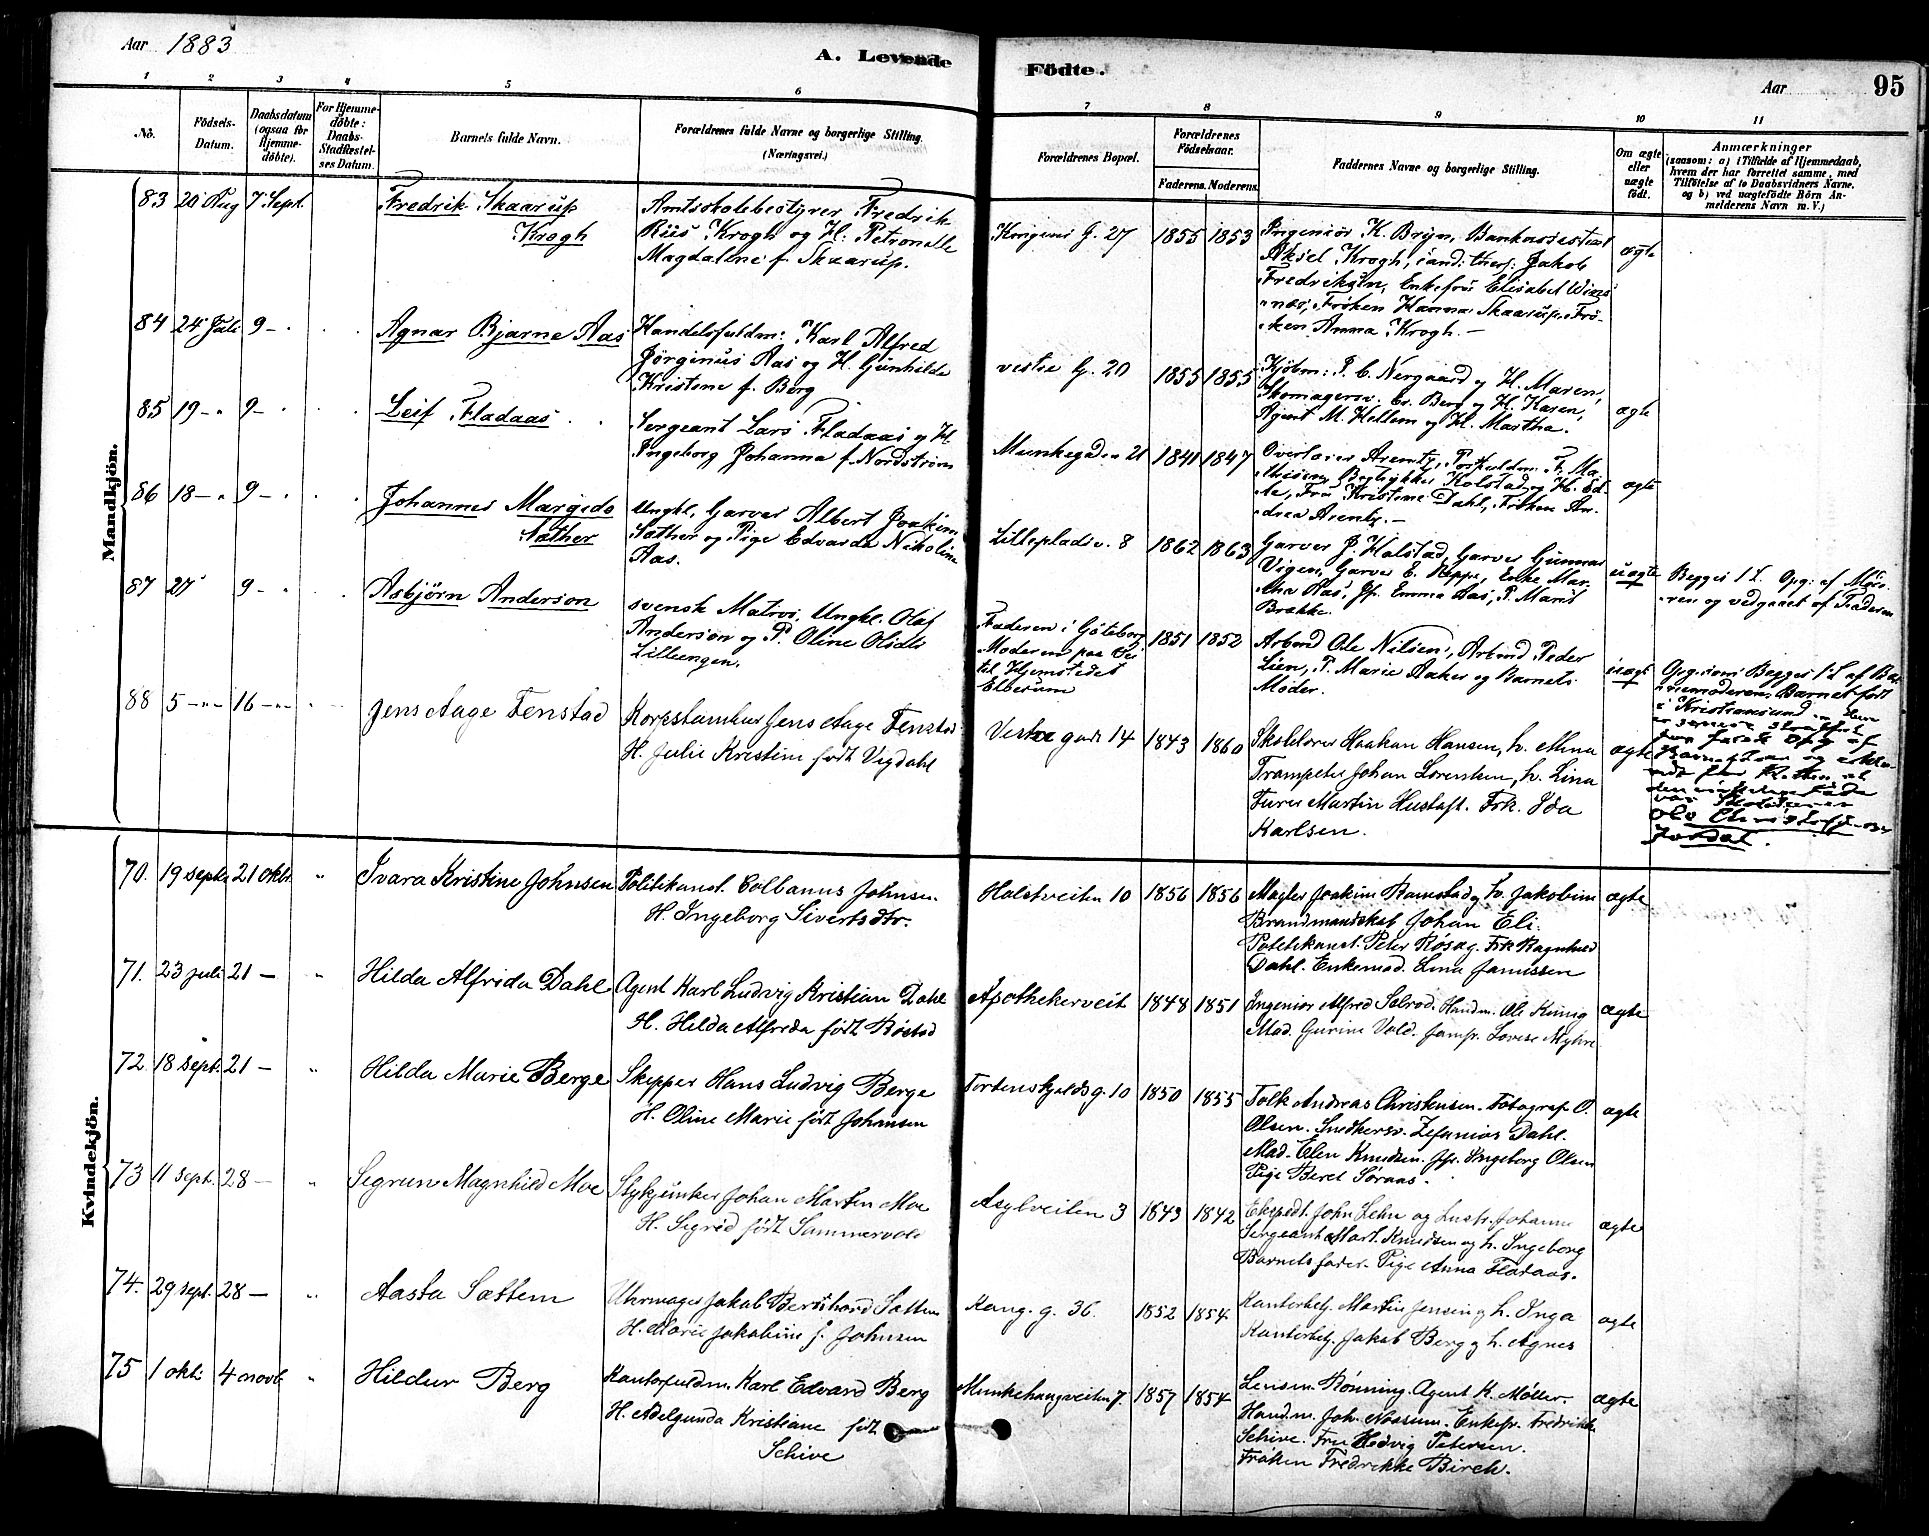 Aar 1883
A. Levende
Födte.
Aar
95
1 2 3 4 5 6 7 8 9 10 11
No.
Födsels-
Datum.
Daabsdatum
(ogsaa for
Hjemme-
døbte).
For Hjemme-
døbte:
Daabs-
Stadfæstel-
ses Datum.
Barnets fulde Navn.
Forældrenes fulde Navne og borgerlige Stilling.
(Næringsvei.)
Forældrenes Bopæl.
Forældrenes
Födselsaar.
Faderens. Moderens.
Faddernes Navne og borgerlige Stilling.
Om ægte
eller
uægte
födt.
Anmærkninger
(saasom: a) i Tilfælde af Hjemmedaab,
hvem der har forrettet samme, med
Tilföielse af to Daabsvidners Navne,
og b) ved uægtefödte Börn An-
melderens Navn m. V.)
Mandkjön.
83 20 Aug 7 Sept.
Fredrik Skaarup
Krogh
Amtsskolebestyrer Fredrik
Riis Krogh og H. Petronelle
Magdalene f. Skaarup.
Kongens G. 27
1855 1853
Ingeniør K. Bryn, Bankassistent
Aksel Krogh, cand: theol: Jakob
Fredriksen, Enkefrue Elisabet
Frøken Hanna Skaarup, Frø-
ken Anna Krogh. -
ægte
84 24 Juli 9 - "
Agnar Bjarne Aas
Handelsfuldm: Karl Alfred
Jörginus Aas og H. Gunhilde
Kristine f. Berg
vestre G. 20
1855 1855
Kjøbm: P. C. Nergaard og H. Maren,
Skomagersv. Berg og H. Karen,
Agent M. Hellem og H. Martha.
ægte
85 19 - " 9 - "
Leif Fladaas
Sergeant Lars Fladaas og H.
Ingeborg Johanna f. Nordström
Munkegaden 21
1841 1847
Overlærer Arentz,
Kolstad og H.
Fru Kristine Dahl, Frøken An-
drea Arentz. -
ægte
86 18 - " 9 - "
Johannes Margido
Sæther
Ungkl. Garver Albert Joakim
Sæther og Pige Edvarda Nikoline
Aas.
Lillepladsv. 8
1862 1863
Garver J. Halstad, Garver Gunnar
Vigen, Garver E. Reppe, Enke Mar-
tha Aas, Jfr. Emma Aas, P. Marit
Brække.
uægte
Begges 1 L. Opg: af Mode-
ren og vedgaaet af Faderen
87 27 9 - "
Asbjørn Anderson
svensk Matros, Ungkl. Olaf
Anderson og P. Oline Olsdtr
Lillengen.
Faderen i Göteborg
Moderen paa
til Hjemstedet
Elverum
1851 1852
Arbmd Ole Nilsen, Arbmd Peder
Lien, P. Marie Aaker og Barnets
Moder.
uægte
Opg. som Begges 1 L. af
Barnet født
i Kristiansund
Ole Christoffersen
Jordal.
88 5 - " - 16 - " -
Jens Aage Fenstad
Jens Aage Fenstad
H. Julie Kristine født Vigdahl
Vestre gade 14
1843 1860
Skolelærer Haakon Hansen, h. Mina
Trompeter Johan Lorentsen, h. Lina
Furer Martin Hustaft. Frk. Ida
Karlsen.
ægte
Kvindekjön.
70. 19 septr 21 oktr "
Ivara Kristine Johnsen
Politikonst. Colbanus Johnsen
H. Ingeborg Sivertsdtr.
Holstveiten 10
1856 1856
Mægler Joakim Ramstad og h. Jakobine
Brandmandskab Johan Eli.
Politikonst. Peter Røsag. Frk Ragnhild
Dahl. Enkemad. Lina Janissen
ægte
71. 23 juli 21 - "
Hilda Alfrida Dahl
Agent Karl Ludvig Kristian Dahl
H. Hilda Alfrida født Röstad
Apothekerveit
1848 1851
Ingeniør Alfred Solrod. Handm. Ole König
Mad. Gurine Vold. Jomfr. Lovise Myhre
ægte
72 18 sept. 21 - "
Hilda Marie Berge
Skipper Hans Ludvig Berge
H. Oline Marie født Johansen
Tordenskjolds g. 10
1850 1855
Tolk Andreas Christensen. Fotograf O.
Olsen. Snedkersv. Zefanias Dahl.
Mad. Elen Knudsen. Jfr. Ingeborg Olsen
Pige Beret Søraas.
ægte
73 11 sept. 28 - "
Sigrun Magnhild Moe
Stykjunker Johan Martin Moe
H. Sigrid født Sammervold
Asylveiten 3
1843 1842
Ekspedt. John Lehn og Hustr. Johanne
Sergeant Mart. Knudsen og h. Ingeborg
Barnets fader. Pige Anna Fladaas.
ægte
74. 29 sept. 28 - "
Aasta Sættem
Uhrmager Jakob Bernhard Sættem
H. Marie Jakobine f. Johnsen
Kong. g. 36.
1852 1854
Kontorbetj. Martin Jensen og h. Inga
Kontorbetj. Jakob Berg og h. Agnes
ægte
75 1 okt. 4 novb "
Hildur Berg
Kontorfuldm. Karl Edvard Berg
H. Adelgunda Kristiane født
Schive
Munkehaugveiten 7.
1857 1854
Lensm. Rønning. Agent K. Møller.
Handm. Joh. Mossum. Enkefr. Fredrikke
Schive. Fru Hedvig Petersen.
Frøken Fredrikke Birch.
ægte